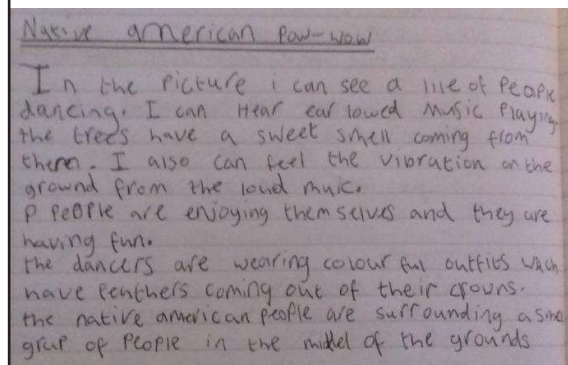 Native american Pow-wow
In the picture i can see a line of People
dancing. I can Hear ear lowed Music Playing.
the trees have a sweet smell coming from
there. I also can feel the vibration on the
grownd from the loud muic.
P PeOPle are enjoying them selves and they are
having fun.
the dancers are wearing colour ful outfits which
have feathers coming out of their crowns.
the native american people are surrounding a
grup of People in the middel of the grounds